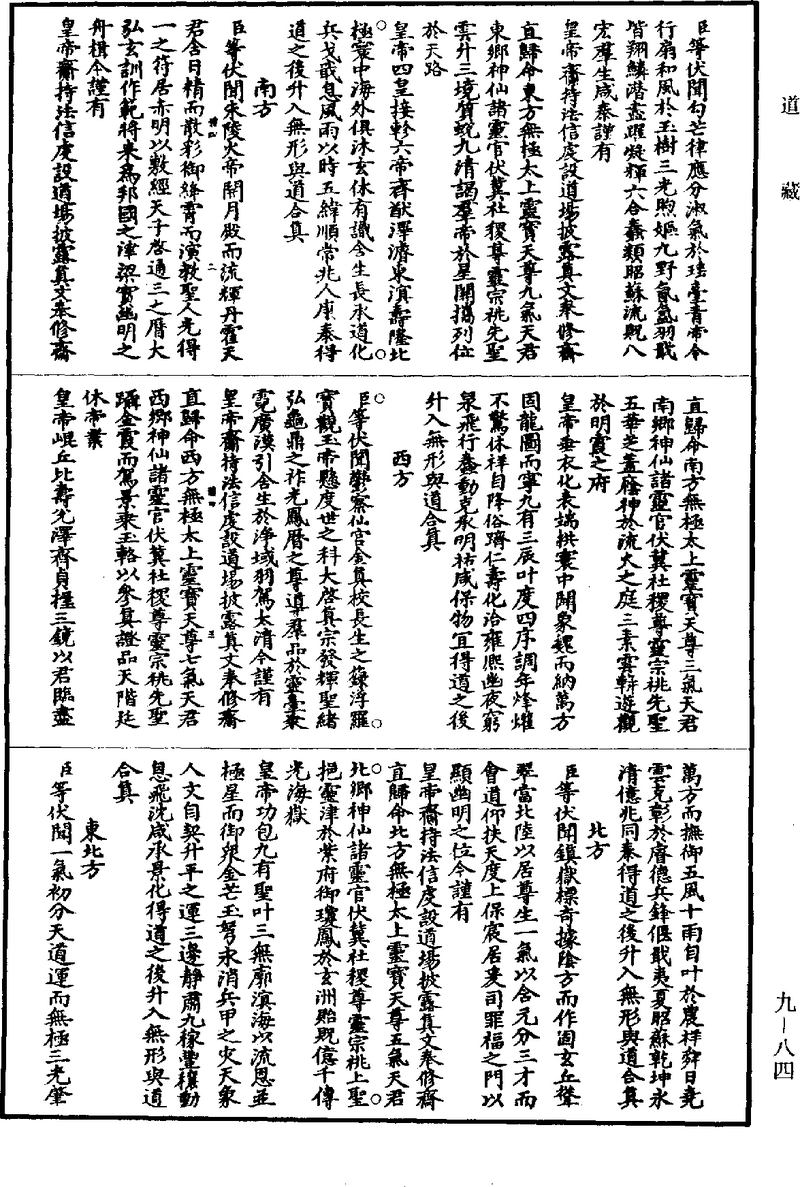 道藏
臣等伏聞勾芒律應分淑氣於瑤臺青帝令
行扇和風於玉樹三光煦嫗九野氤氳羽戢
皆翔鱗潛盡躍凝輝六合蠢類昭蘇流貺八
宏羣生咸泰謹有
皇帝齋持法信虔設道場披露真文奉修齋
直歸命東方無極太上靈寶天尊九氣天君
東鄉神仙諸靈官伏冀社稷尊靈宗祧先聖
雲升三境質蛻九清謁羣帝於星關攜列位
於天路
皇帝四皇接軫六帝齊猷澤濟東溟壽隆北
極寰中海外俱沐玄休有識含生長承道化
兵戈戢息風雨以時五緯順常兆人康泰得
道之後升入無形與道合真
南方
臣等伏聞朱陵火帝開月殿而流輝丹霍天
君含日精而散彩御絳霄而演教聖人先得
一之符居赤明以敷經天子啓通三之曆大
弘玄訓作範將來為邦國之津梁實幽明之
舟楫今謹有
皇帝齋持法信虔設道場披露真文奉修齋
直歸命南方無極太上靈寶天尊三氣天君
南鄉神仙諸靈官伏冀社稷尊靈宗祧先聖
五華芝蓋蔭神於流火之庭三素雲軿遊觀
於明霞之府
皇帝垂衣化表端拱寰中開象魏而納萬方
固龍圖而寧九有三辰叶度四序調年烽燧
不驚休祥自降俗躋仁壽化洽雍熙幽夜窮
泉飛行蠢動克承明祐咸保物宜得道之後
升入無形與道合真
西方
臣等伏聞鬱察仙宮金真校長生之籙浮羅
寶觀玉帝懸度世之科大啓真宗發輝聖緒
弘龜鼎之祚光鳳曆之尊導羣品於靈臺乘
霓廣漠引含生於淨域羽駕太清今謹有
皇帝齋持法信虔設道場披露真文奉修齋
直歸命西方無極太上靈寶天尊七氣天君
西鄉神仙諸靈官伏冀社稷尊靈宗祧先聖
躡金霞而駕景乘玉輅以參真證品天階延
休帝業
皇帝崐丘比壽光澤齊貞握三鏡以君臨盡
萬方而撫御五風十雨自叶於農祥舜日堯
雲克彰於睿德兵鋒偃戢夷夏昭蘇乾坤永
清億兆同泰得道之後升入無形與道合真
北方
臣等伏聞鎮嶽標奇據陰方而作固玄丘聳
翠當北陸以居尊生一氣以含元分三才而
會道仰扶天度上保宸居爰司罪福之門以
顯幽明之位今謹有
皇帝齋持法信虔設道場披露真文奉修齋
直歸命北方無極太上靈寶天尊五氣天君
北鄉神仙諸靈官伏冀社稷尊靈宗祧上聖
挹靈津於紫府御瓊鳳於玄洲貽貺億千傳
光海嶽
皇帝功包九有聖叶三無廓溟海以流恩並
極星而御衆金芒玉弩永消兵甲之災天象
人文自契升平之運三邊靜肅九稼豐穰動
息飛沈咸承景化得道之後升入無形與道
合真
東北方
臣等伏聞一氣初分天道運而無極三光肇
九—八四